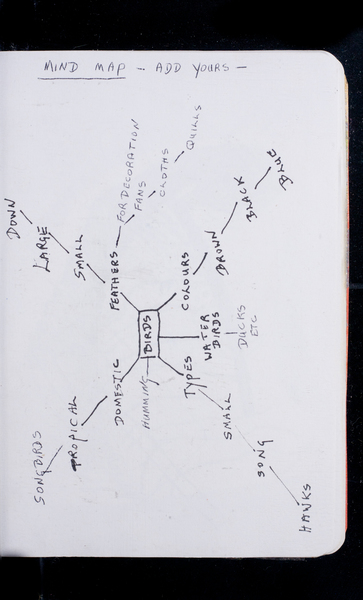 MIND MAP - ADD YOURS -
BIRDS
FEATHERS
SMALL
LARGE
DOWN
FOR DECORATION
FANS
CLOTHS
QUILLS
COLOURS
BROWN
BLACK
BLUE
WATER
BIRDS
DUCKS
ETC
TYPES
SMALL
SONG
HAWKS
HUMMING
DOMESTIC
TROPICAL
SONGBIRDS